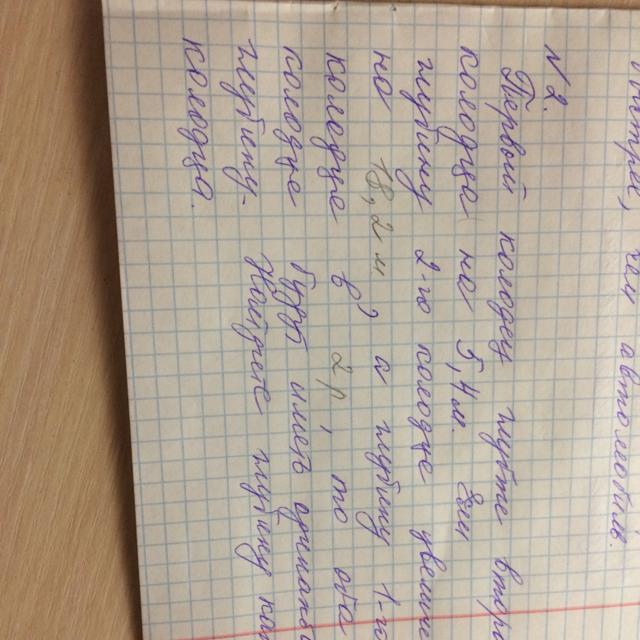 автомобиль
N 2.
Первый колодец глубже второ
колодца на 5,4 м. Если
глубину 2-го колодца увелич
на 18,2 м, а глубину 1-го
колодца в 2 р, то оба
колодца будут иметь одинаков
глубину. Найдите глубину ка
колодца.